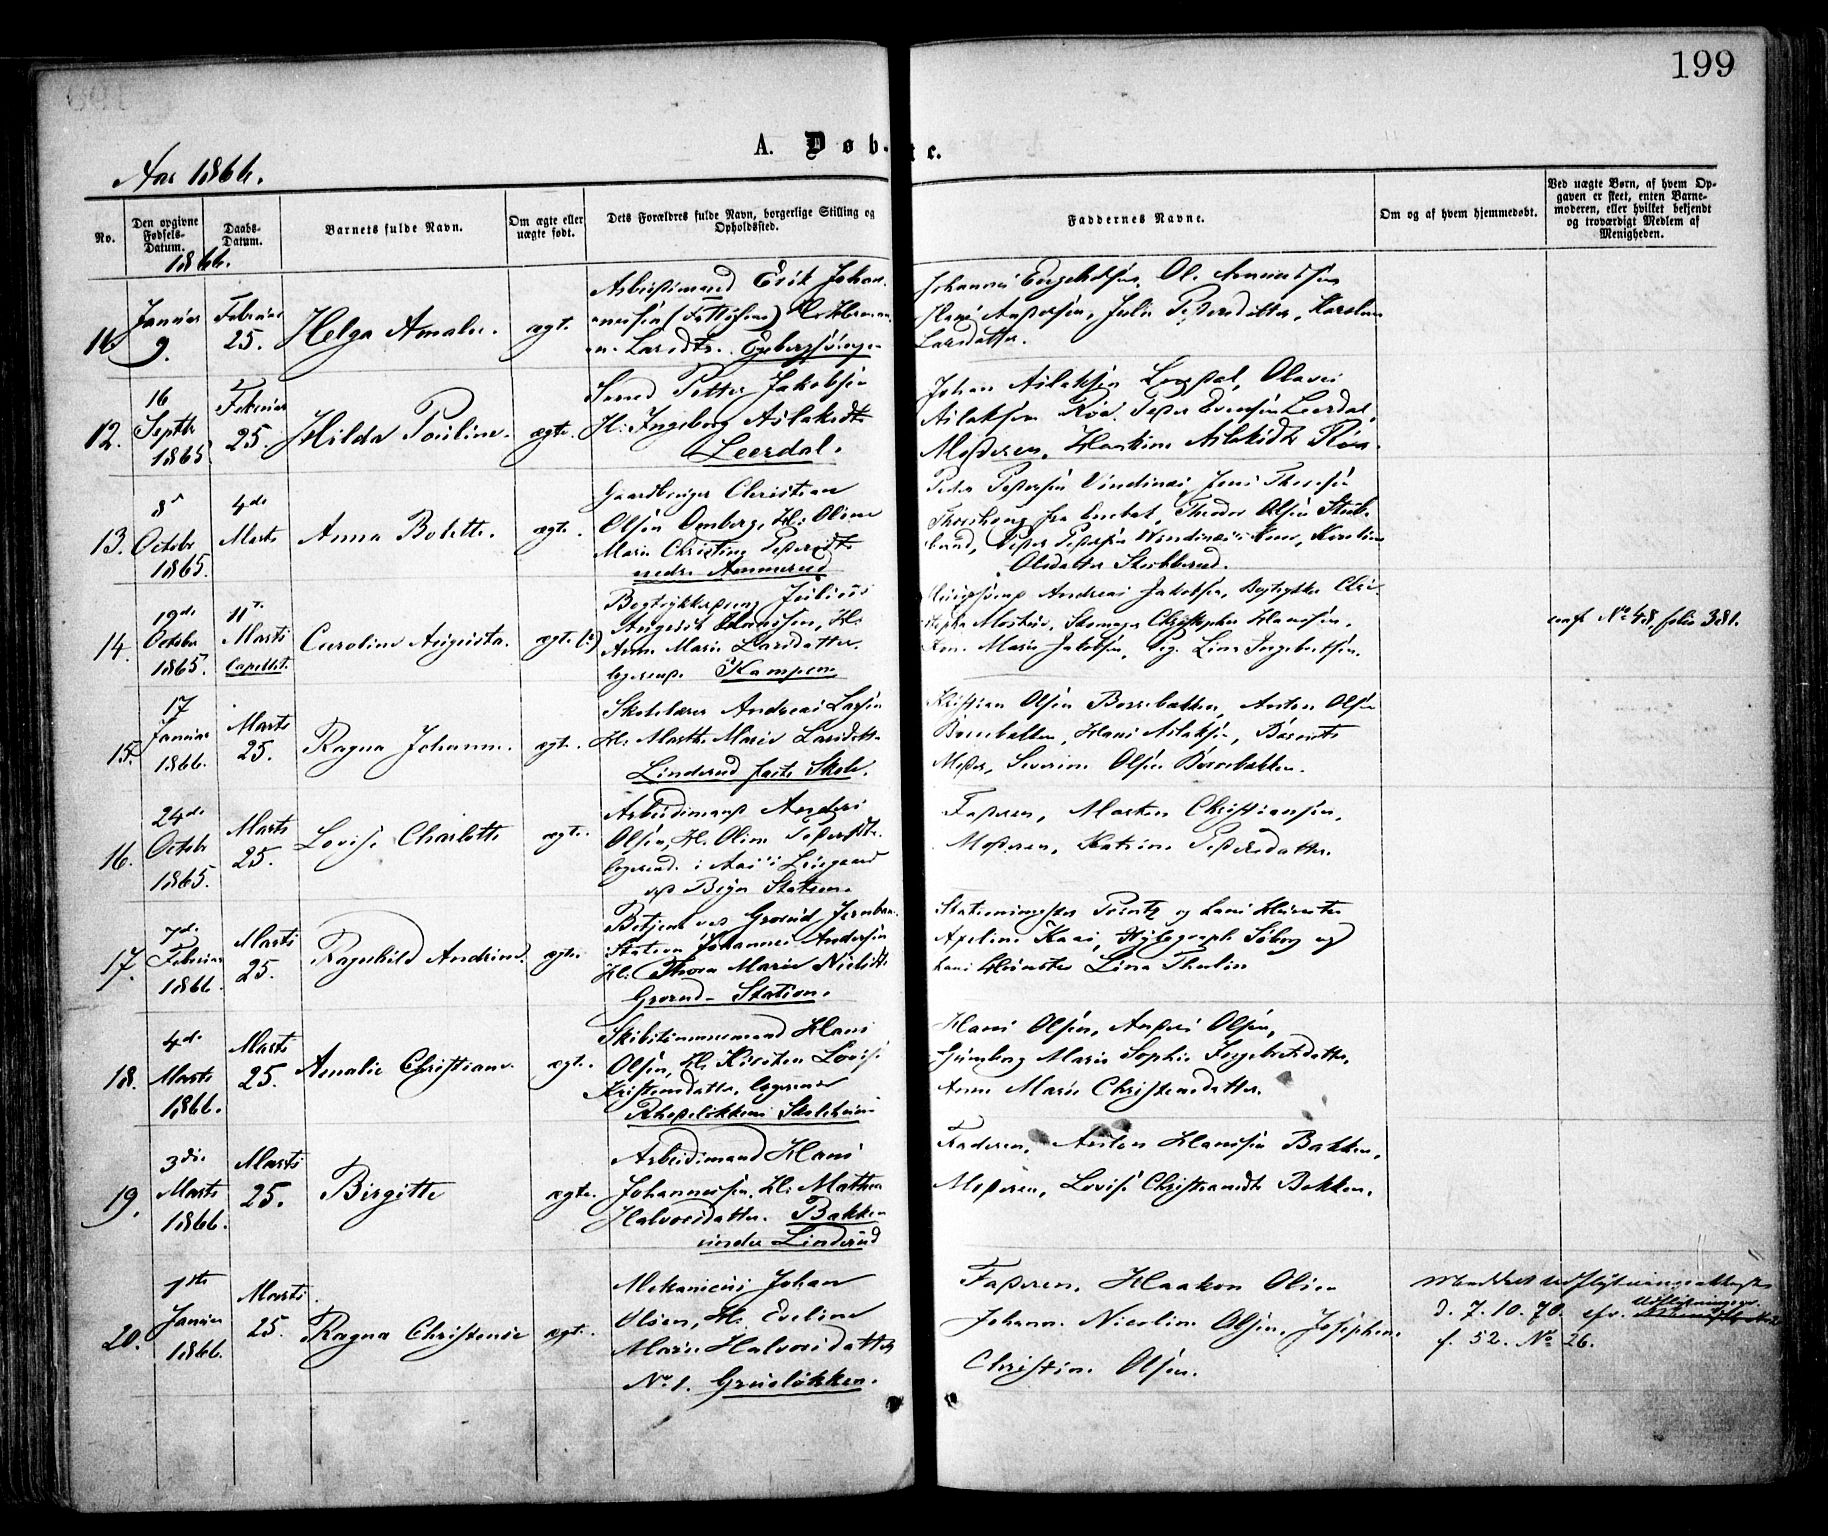 199
A. Døbte.
Aar 1866.
No.
Den opgivne Fødsels-Datum.
Daabs-Datum.
Barnets fulde Navn.
Om ægte eller uægte født.
Dets Forældres fulde Navn, borgerlige Stilling og Opholdssted.
Faddernes Navne.
Om og af hvem hjemmedøbt.
Ved uægte Børn, af hvem Opgaven er skeet, enten Barnemoderen, eller hvilket bekjendt og troværdigt Medlem af Menigheden.
1866.
11.
Januar
9.
Februar
25.
Helga Amalie.
ægte
Arbeidsmand Erik Johan-
Larsdtr.
Johannes Engebretsen, Ole Amundsen
Hans Andersen, Julie Pedersdatter, Karoline
Larsdatter.
12.
16
Septbr
1865
Februar
25.
Hilda Pouline.
ægte.
Smed Petter Jakobsen
H. Ingeborg Aslaksdtr
Leerdal.
Johan Aslaksen Leerdal, Olaves
Aslaksen Røa, Peder Evensen Leerdal,
Moderen, Aslaksdtr Røa.
13.
8d
Octobr
1865.
4de
Marts
Anna Bolette.
ægte.
Gaardbruger Christian
Olsen Omberg, H: Oline
Marie Christine Pedersdtr
nedre Ammerud
Peder Pedersen Jens
Theodor Olsen Stub-
berud, Peder Pedersen Karoline
Olsdatter Stubberud.
14.
19de
Octobr
1865.
11te
Marts
Capellet.
Caroline Augusta.
ægte
Bogtrykkersvend Julius
Hanssen, H.
Anne Marie Larsdatter
logerende Kampen
Andreas Jakobsen, Bogtrykker Chri-
Skomager Christopher Hanssen,
Marie Jakobsen, Pig. Lina Ingebretsen.
conf No 48, folio 381.
15.
17
Januar
1866.
Marts
25.
Ragna Johanne.
ægte.
Skolelærer Andreas
H. Marthe Marie Larsdatter
Linderud faste Skole.
Kristian Olsen Borrebakken, Anton Olsen
Borrebakken, Hans Aslaksen, Barnets
Moder, Severine Olsen Borrebakken.
16.
24de
Octobr
1865.
Marts
25.
Lovise Charlotte
ægte.
Arbeidsmand Anders
Olsen, H. Oline Pedersdtr.
logerend. i
ved Bryn Station.
Faderen, Morten Christiansen,
Moderen, Katrine Pedersdatter.
17.
7de
Februar
1866.
Marts
25.
Ragnhild Andrine.
ægte
Betjent ved Grorud Jernban.
Station Johannes Andersen
H: Thora Marie Nielsdtr
Grorud Station.
Stationsmester og hans Hustru
Axeline Søberg og
hans Hustru Lina Thulin
18.
4de
Marts
1866.
Marts
25.
Amalie Christiane.
ægte.
Skibstømmermand Hans
Olsen, H. Kirsten Lovise
Kristensdatter, logerende
Rhodeløkkens Skolehuus
Hans Olsen, Anders Olsen,
Gunborg Marie Sophie Ingebretsdatter,
Anne Marie Christensdatter.
19.
3die
Marts
1866.
Marts
25.
Birgitte
ægte.
Arbeidsmand Hans
Johannessen, H: Mathea
Halvorsdatter. Bakken
under Linderud
Faderen, Anton Hanssen Bakken,
Moderen, Lovise Christiansdtr Bakken.
20.
1ste
Januar
1866.
Marts
25.
Ragna Christense
ægte.
Mekanicus Johan
Olsen, H. Eveline
Marie Halvorsdatter
No 1. Grueløkken.
Faderen, Haakon Olsen
Johanne Nicoline Olsen, Josephine
Christine Olsen.
Meddelt Udflytningsattest
d. 7.10.70. cfr. Udflytningspr.
f. 52. No 26.